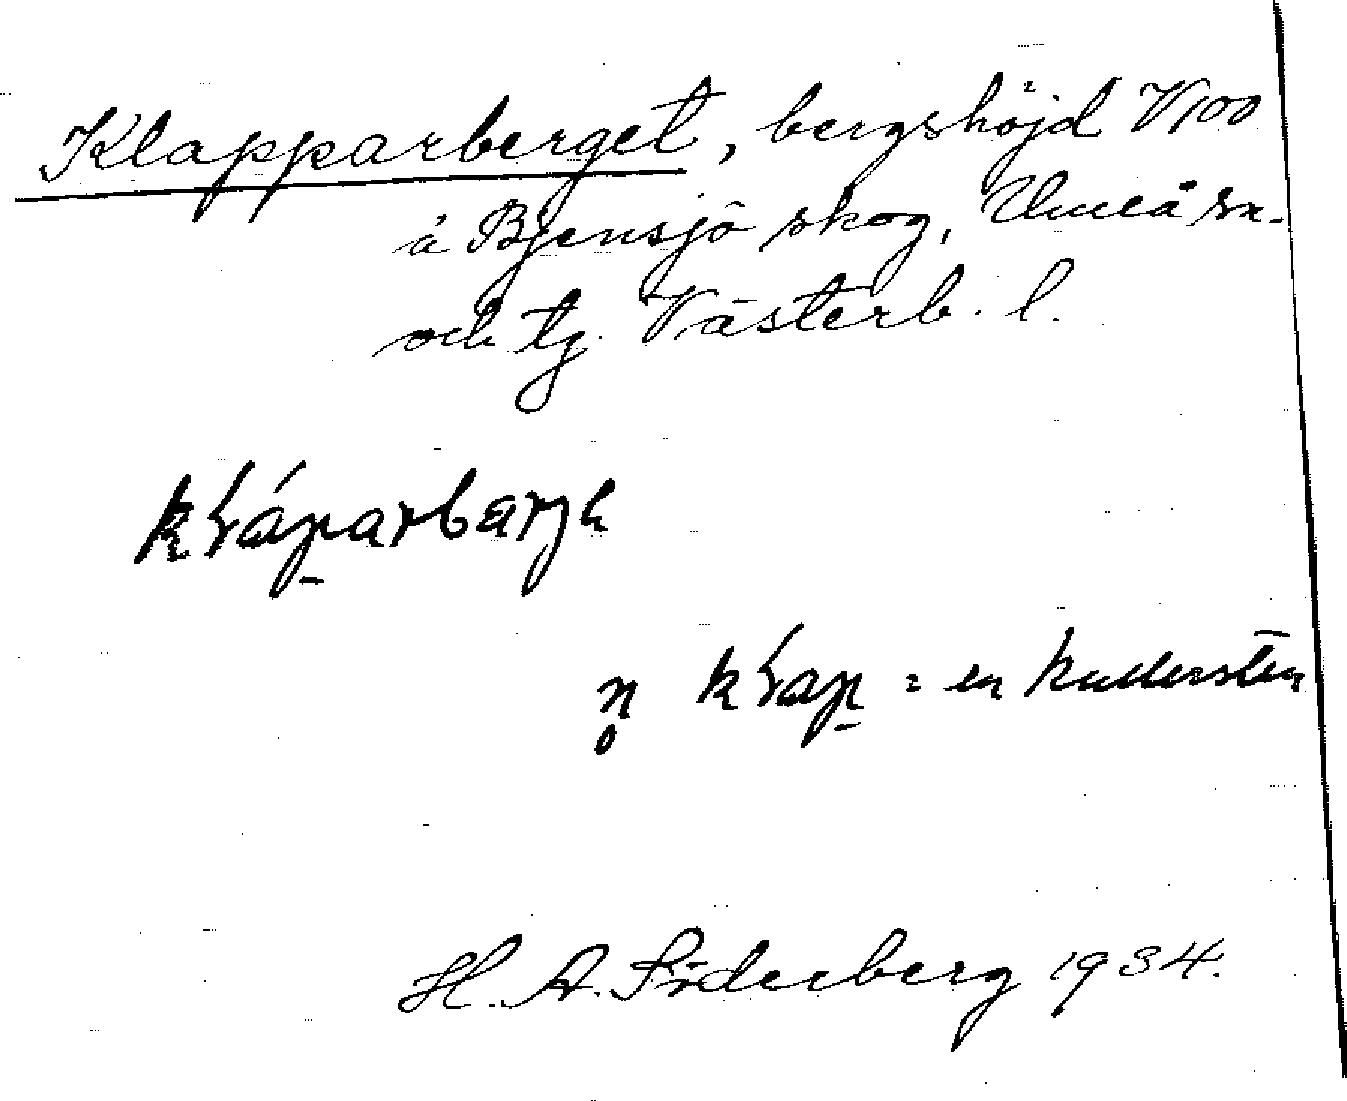 Klapparberget, bergshöjd V 100
å Bjensjö skog, Umeå sn.
och tg. Västerb. l.
kláparbærje
n̥ klap = en kullerstēn
H. A. Söderberg 1934.